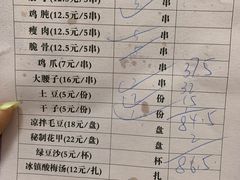 鸡肫(12.5元/5串) 串
瘦肉(12.5元/5串) 串
脆骨(12.5元/5串) 串
鸡爪(7元/串) 串
大腰子(16元/串) 串 32
土豆(5元/份) 份
干子(5元/份) 份
凉拌毛豆(18元/盘) 盘
秘制花甲(22元/盘) 盘
绿豆沙(5元/杯) 杯
冰镇酸梅汤(12元/扎) 扎